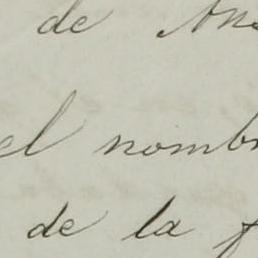 de
el nombr
de la f